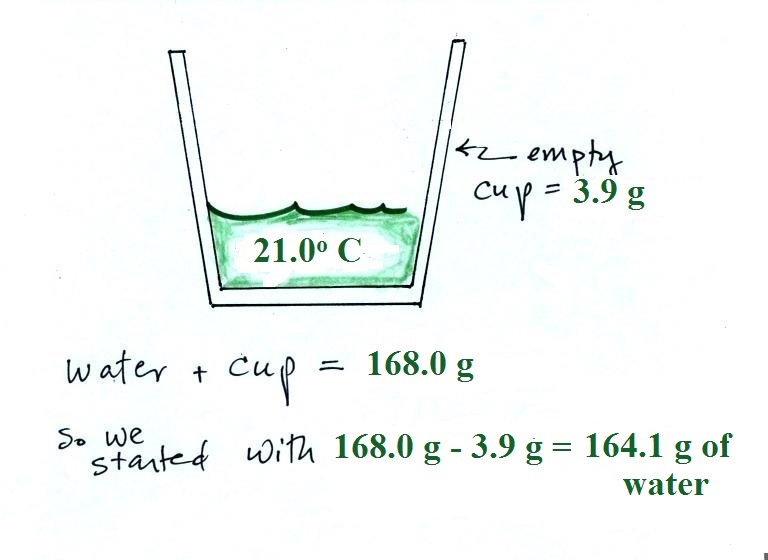 empty
cup = 3.9 g
21.0º C
water + cup = 168.0 g
So we
started with 168.0 g - 3.9 g = 164.1 g of
water